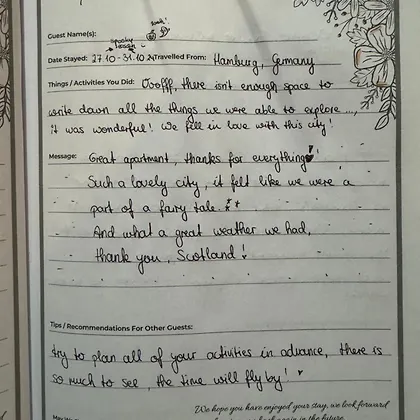 Guest Name(s):
spooky season
Date Stayed: 27.10 - 31.10.24 Travelled From: Hamburg, Germany
Things / Activities You Did: Uoofff, there isn't enough space to
write down all the things we were able to explore...,
it was wonderful! We fell in love with this city!
Message: Great apartment, thanks for everything
Such a lovely city, it felt like we were a
part of a fairy tale.
And what a great weather we had,
thank you, Scotland!
Tips / Recommendations For Other Guests:
try to plan all of your activities in advance, there is
so much to see, the time will fly by!
We hope you have enjoyed your stay, we look forward